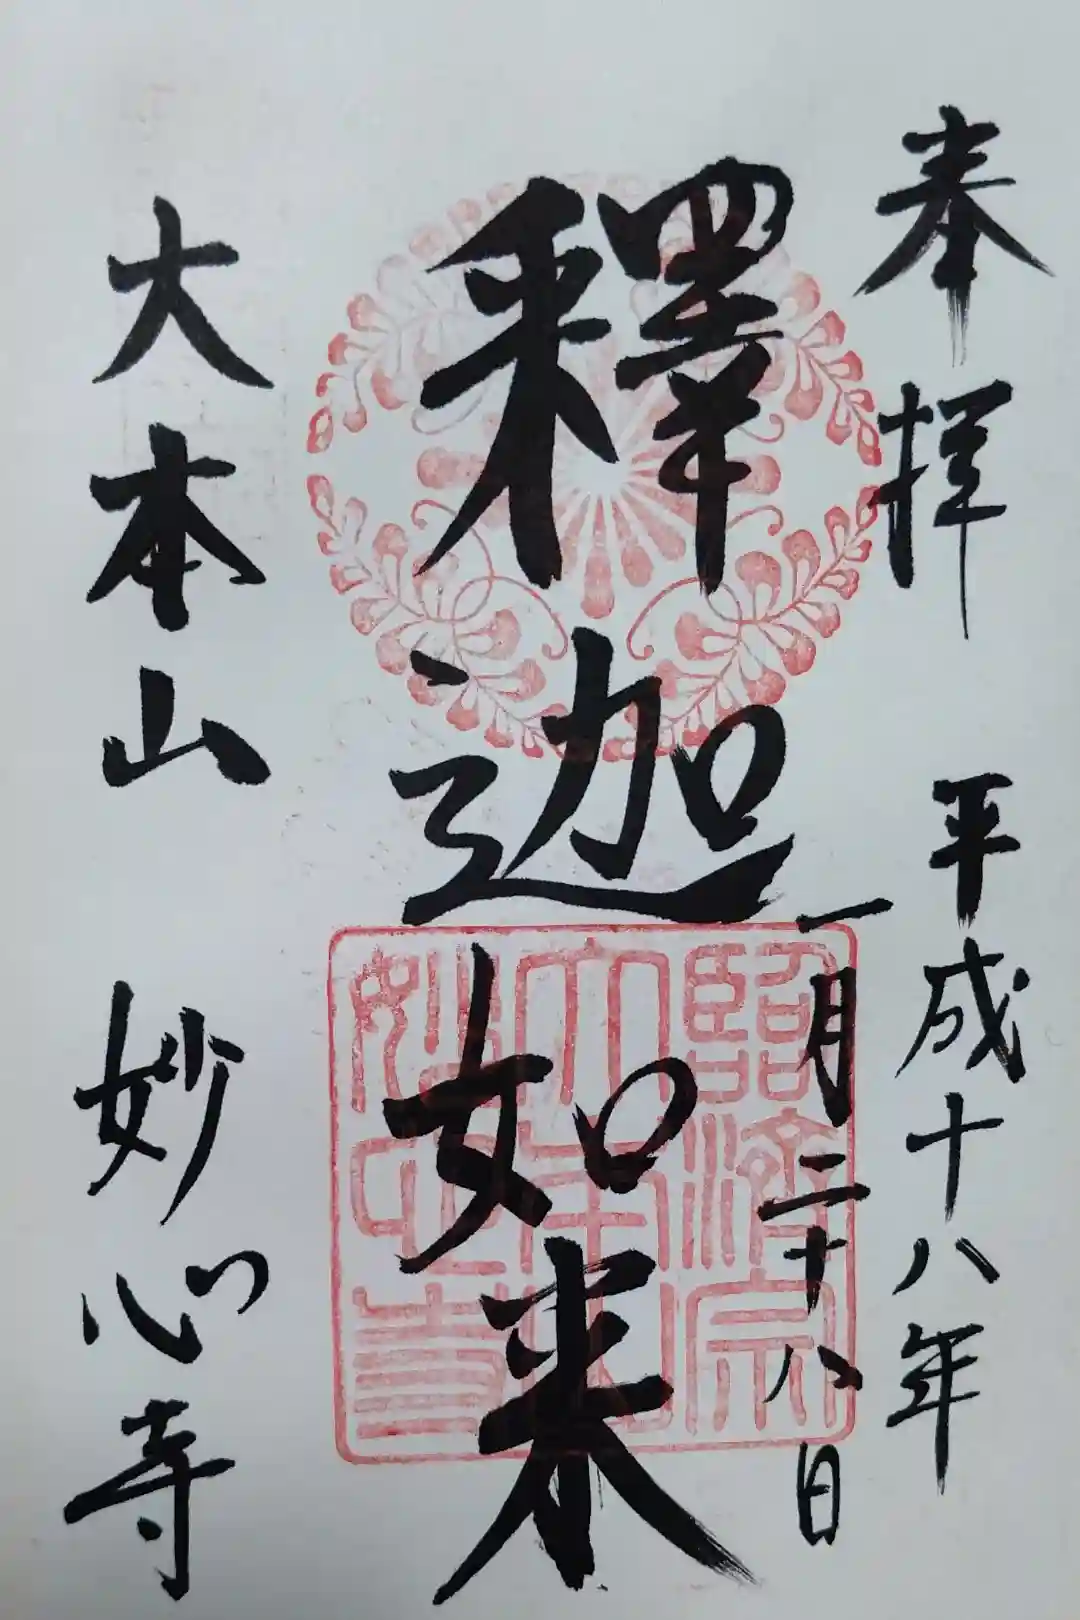 奉拝
平成十八年
一月二十八日
釋迦如来
臨済宗
大本山
妙心寺
大本山
妙心寺